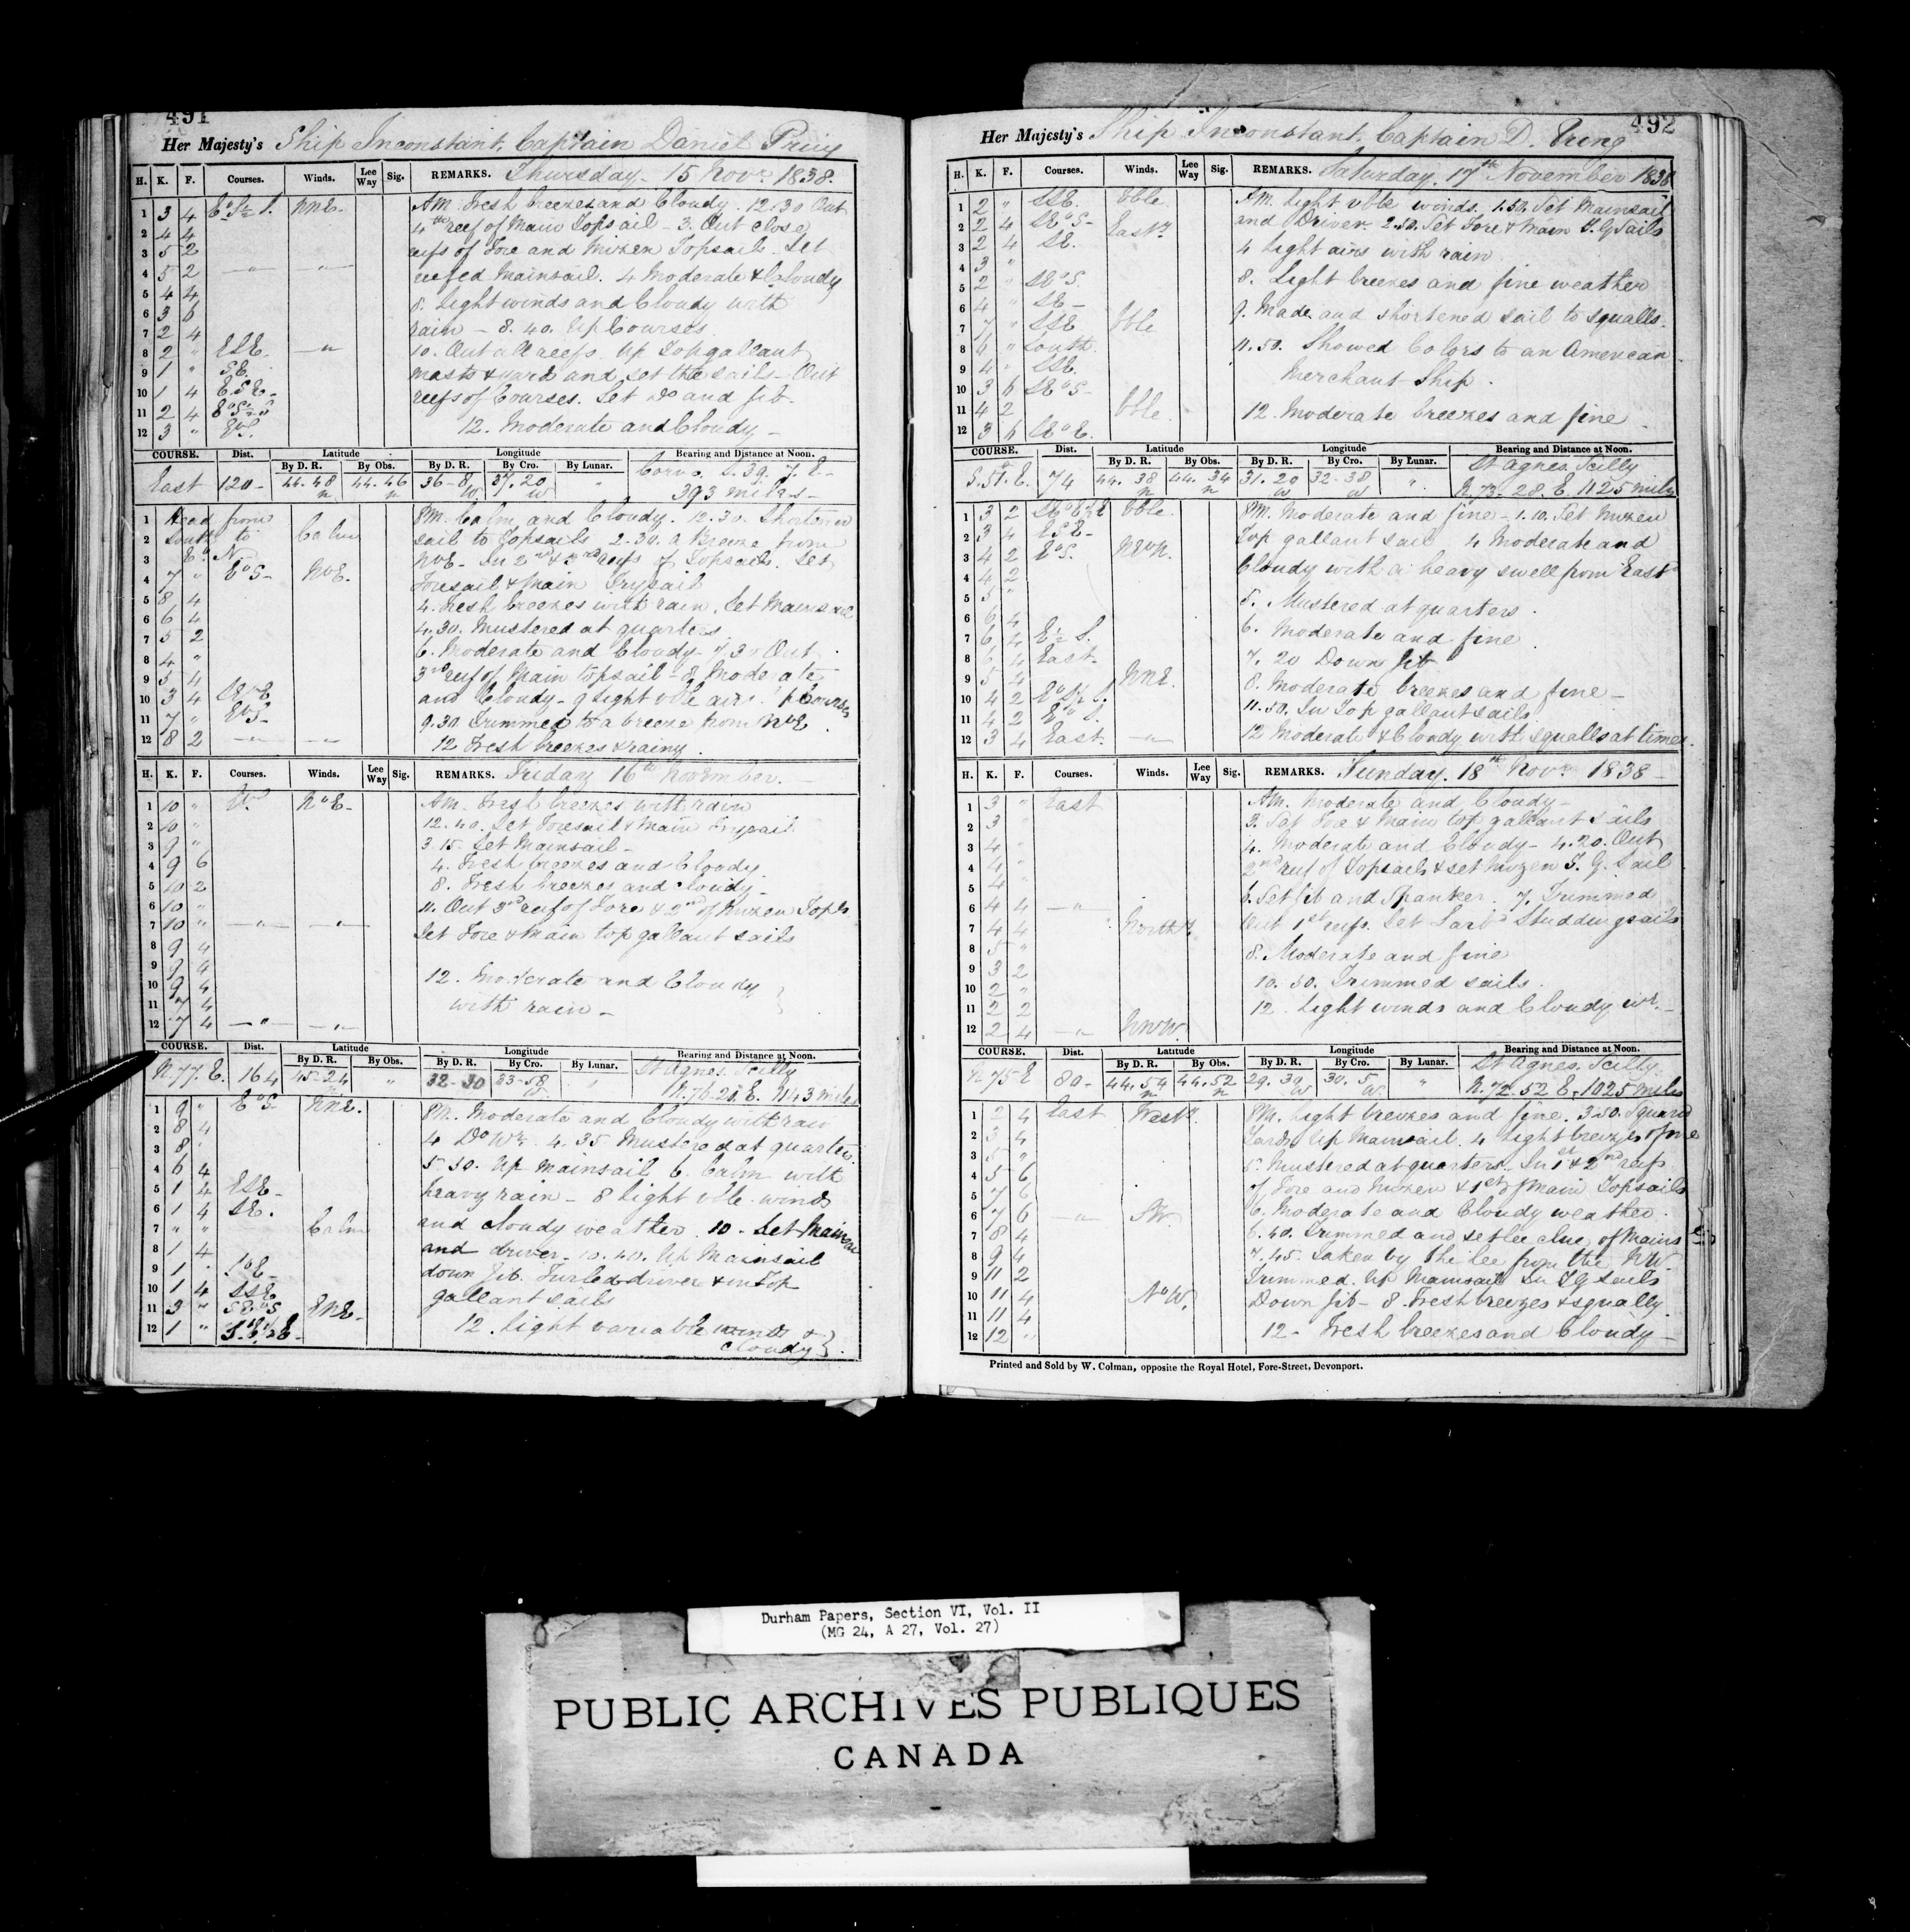 491
Her Majesty's Ship Inconstant, Captain Daniel Pring
H. K. F. Courses. Winds. Lee Way Sig. REMARKS. Thursday - 15 Novr. 1838.
1 3 4 EbS½S. NNE. AM. Fresh breezes and Cloudy. 12.30 Out
2 4 4 4th reef of Main Topsail - 3. Out close
3 5 2 reefs of Fore and Mizen Topsails. Set
4 5 2 —"— —"— reefed Mainsail. 4 Moderate & Cloudy
5 4 4 8. Light winds and Cloudy with
6 3 6 rain - 8.40. Up Courses.
7 2 4
8 2 " ESE. —"— 10. Out all reefs. Up Topgallant
9 1 " SE. masts & yards and set the sails - Out
10 1 4 ESE - reefs of Courses. Set Do and Jib.
11 2 4
12 3 " EbS. 12. Moderate and Cloudy -
COURSE. Dist. Latitude Longitude Bearing and Distance at Noon.
By D. R. By Obs. By D. R. By Cro. By Lunar.
East 120 - 44.48 N 44.46 N 36-8 W 37.20 W " Corvo S.39.7.E -
393 miles -
1 Head from PM. Calm and Cloudy. 12.30. Shortened
2 South to Calm sail to Topsails 2.30. a Breeze from
3 EbN. NbE. In 2nd & 3rd reefs of Topsails. Set
4 7 " EbS - NbE. Foresail & Main Trysail
5 8 4 4. Fresh breezes with rain. Set Mainsail
6 6 4 4.30. Mustered at quarters
7 5 2 6. Moderate and Cloudy - 7.30 Out
8 4 " 3rd reef of Main topsail - 8 Moderate
9 5 4 and Cloudy - 9 Light vble airs. Up Courses
10 3 4
11 7 " EbS - 9.30. Trimmed to a breeze from NbE.
12 8 2 —"— —"— 12 Fresh breezes & rainy.
H. K. F. Courses. Winds. Lee Way Sig. REMARKS. Friday 16th November.
1 10 " NbE. AM. Fresh breezes with rain
2 10 " 12.40. Set Foresail & Main Trysail
3 9 " 3.15. Set Mainsail -
4 9 6 4. Fresh breezes and Cloudy
5 10 2 8. Fresh breezes and cloudy -
6 10 " 11. Out 3rd reef of Fore & 2nd of Mizen Topls
7 10 " —"— —"— Set Fore & Main top gallant sails
8 9 4
9 9 4 12. Moderate and Cloudy
10 9 4
11 7 4 with rain -
12 7 4 —"— —"—
COURSE. Dist. Latitude Longitude Bearing and Distance at Noon.
By D. R. By Obs. By D. R. By Cro. By Lunar.
N.77.E. 164 45-24 " 32-30 33-58 W " St Agnes. Scilly
N.76.20.E. 1143 miles
1 9 " EbS - NNE. PM. Moderate and Cloudy with rain
2 8 4 4 Do Wr. 4.35 Mustered at quarters.
3 8 " 5.30. Up Mainsail 6. Calm with
4 6 4
5 1 4 ESE - heavy rain - 8 Light vble winds
6 1 4 SE. and cloudy weather. 10 - Set Mainsail
7 " " Calm
8 1 4 and driver - 10.40. Up Mainsail
9 1 " SbE - down Jib. Furled driver & in Top
10 1 4 SSE gallant sails
11 3 " SEbS ENE -
12 1 " 12. Light variable winds &
cloudy.
492
Her Majesty's Ship Inconstant, Captain D. Pring
H. K. F. Courses. Winds. Lee Way Sig. REMARKS. Saturday. 17th November 1838
1 2 " SSE. Vble. AM. Light vble winds. 1.50. Set Mainsail
2 2 4 SEbS - Eastr. and Driver. 2.50. Set Fore & Main T.G Sails
3 2 4 SE. 4 Light airs with rain
4 3 "
5 2 " SEbS. 8. Light breezes and fine weather
6 4 " SE -
7 7 " SSE Vble 9. Made and shortened sail to squalls.
8 6 " South. 11.50. Showed Colors to an American
9 4 " SSE. Merchant Ship.
10 3 6 SEbS -
11 4 2 Vble 12. Moderate breezes and fine -
12 3 6
COURSE. Dist. Latitude Longitude Bearing and Distance at Noon.
By D. R. By Obs. By D. R. By Cro. By Lunar.
S.51.E. 74 44.38 N 44.34 N 31.20 W 32-38 W " St Agnes. Scilly
N.73-28.E. 1125 miles
1 3 2 Vble. PM. Moderate and fine - 1.10. Set Mizen
2 3 4 ESE - Top gallant sail 4 Moderate and
3 4 2 EbS. NEbN. Cloudy with a heavy swell from East
4 4 2
5 5 " 5. Mustered at quarters.
6 6 4
7 6 4 E½S. 6. Moderate and fine
8 6 4 East - 7.20 Down Jib
9 5 4 NNE. 8. Moderate breezes and fine -
10 4 2 11.50. In Top gallant sails
11 4 2 EbS.
12 3 4 East. —"— 12 Moderate & Cloudy with squalls at times.
H. K. F. Courses. Winds. Lee Way Sig. REMARKS. Sunday. 18th Novr. 1838 -
1 3 " East AM. Moderate and Cloudy -
2 3 " 3. Set Fore & Main top gallant sails
3 4 " 4. Moderate and Cloudy - 4.20. Out
4 4 " 2nd reef of Topsails & set Mizen T.G. Sail
5 4 "
6 4 4 —"— 6. Set Jib and Spanker. 7. Trimmed
7 4 4 Northr. Out 1st reefs. Set Larbd Studdingsails
8 5 " 8. Moderate and fine
9 3 2
10 2 " 10.50. Trimmed sails.
11 2 2 12. Light winds and Cloudy wr. -
12 2 4 —"— NNW.
COURSE. Dist. Latitude Longitude Bearing and Distance at Noon.
By D. R. By Obs. By D. R. By Cro. By Lunar.
N 75 E 80 - 44.54 N 44.52 N 29.39 W 30.5 W " St Agnes. Scilly.
N.72.52 E. 1025 miles
1 2 4 East Westr. PM. Light breezes and fine. 3.50. Squared
2 3 4 Yards Up Mainsail. 4 Light breezes & fine
3 5 " 5. Mustered at quarters. In 1st & 2nd reefs
4 5 6
5 7 6 of Fore and Mizen & 1st of Main Topsails
6 7 6 —"— SW. 6. Moderate and Cloudy weather.
7 8 4 6.40. Trimmed and set lee clue of Mainsail
8 9 4 7.45. Taken by the lee from the NW.
9 11 2 Trimmed. Up Mainsail In TG Sails
10 11 4 NbW. Down Jib - 8. Fresh breezes & squally.
11 11 4
12 12 " 12 - Fresh breezes and Cloudy -
Printed and Sold by W. Colman, opposite the Royal Hotel, Fore-Street, Devonport.
Durham Papers, Section VI, Vol. II
(MG 24, A 27, Vol. 27)
PUBLIC ARCHIVES PUBLIQUES
CANADA